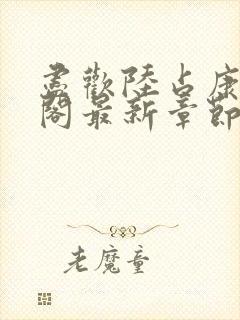 盡歡陸占康
閣最新章節
老魔童